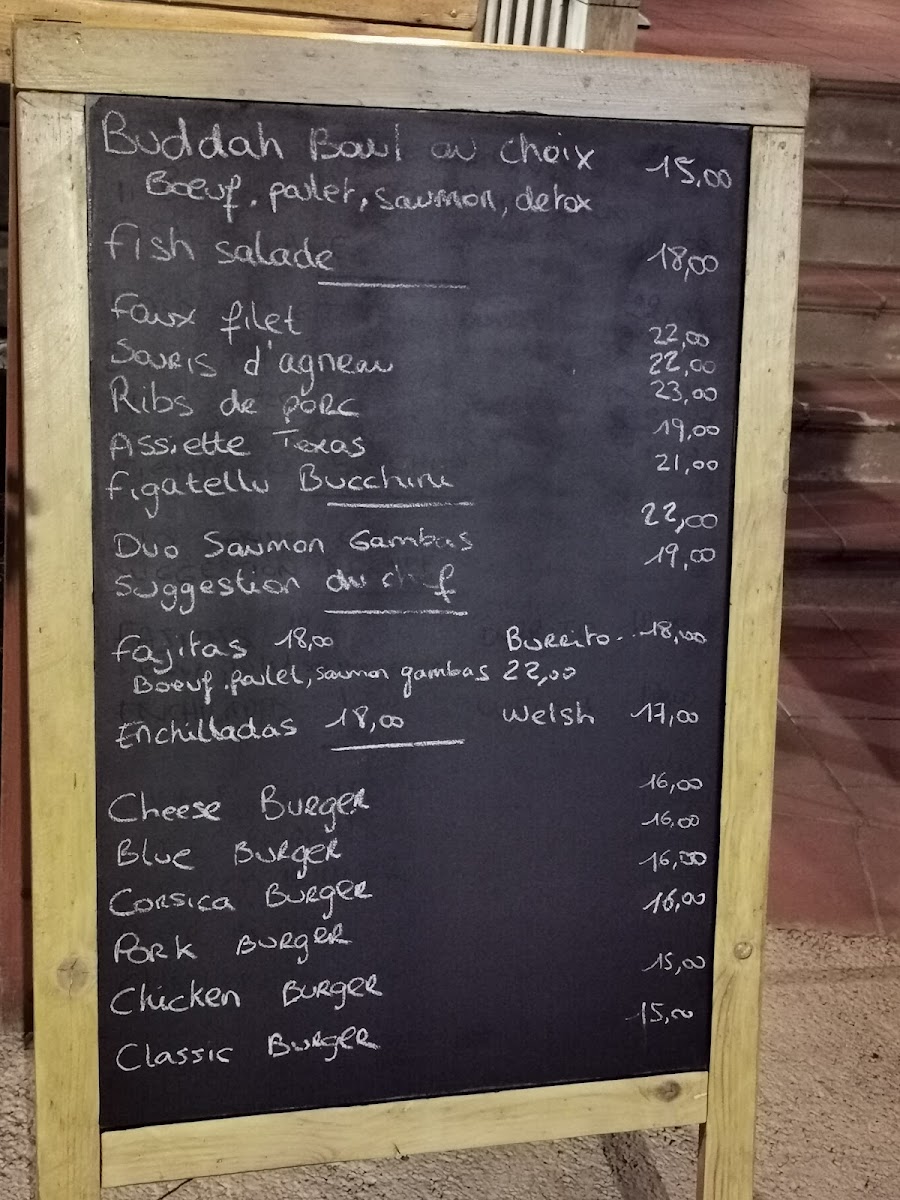 Buddah Bowl au choix 15,00
Boeuf, poulet, saumon, detox
Fish salade 18,00
Faux filet 22,00
Souris d'agneau 22,00
Ribs de porc 23,00
Assiette Texas 19,00
Figatellu Bucchinu 21,00
Duo Saumon Gambas 22,00
Suggestion du chef 19,00
Fajitas 18,00 Burrito..18,00
Boeuf, poulet, saumon gambas 22,00
Enchilladas 18,00 Welsh 17,00
Cheese Burger 16,00
Blue Burger 16,00
Corsica Burger 16,00
Pork Burger 16,00
Chicken Burger 15,00
Classic Burger 15,00